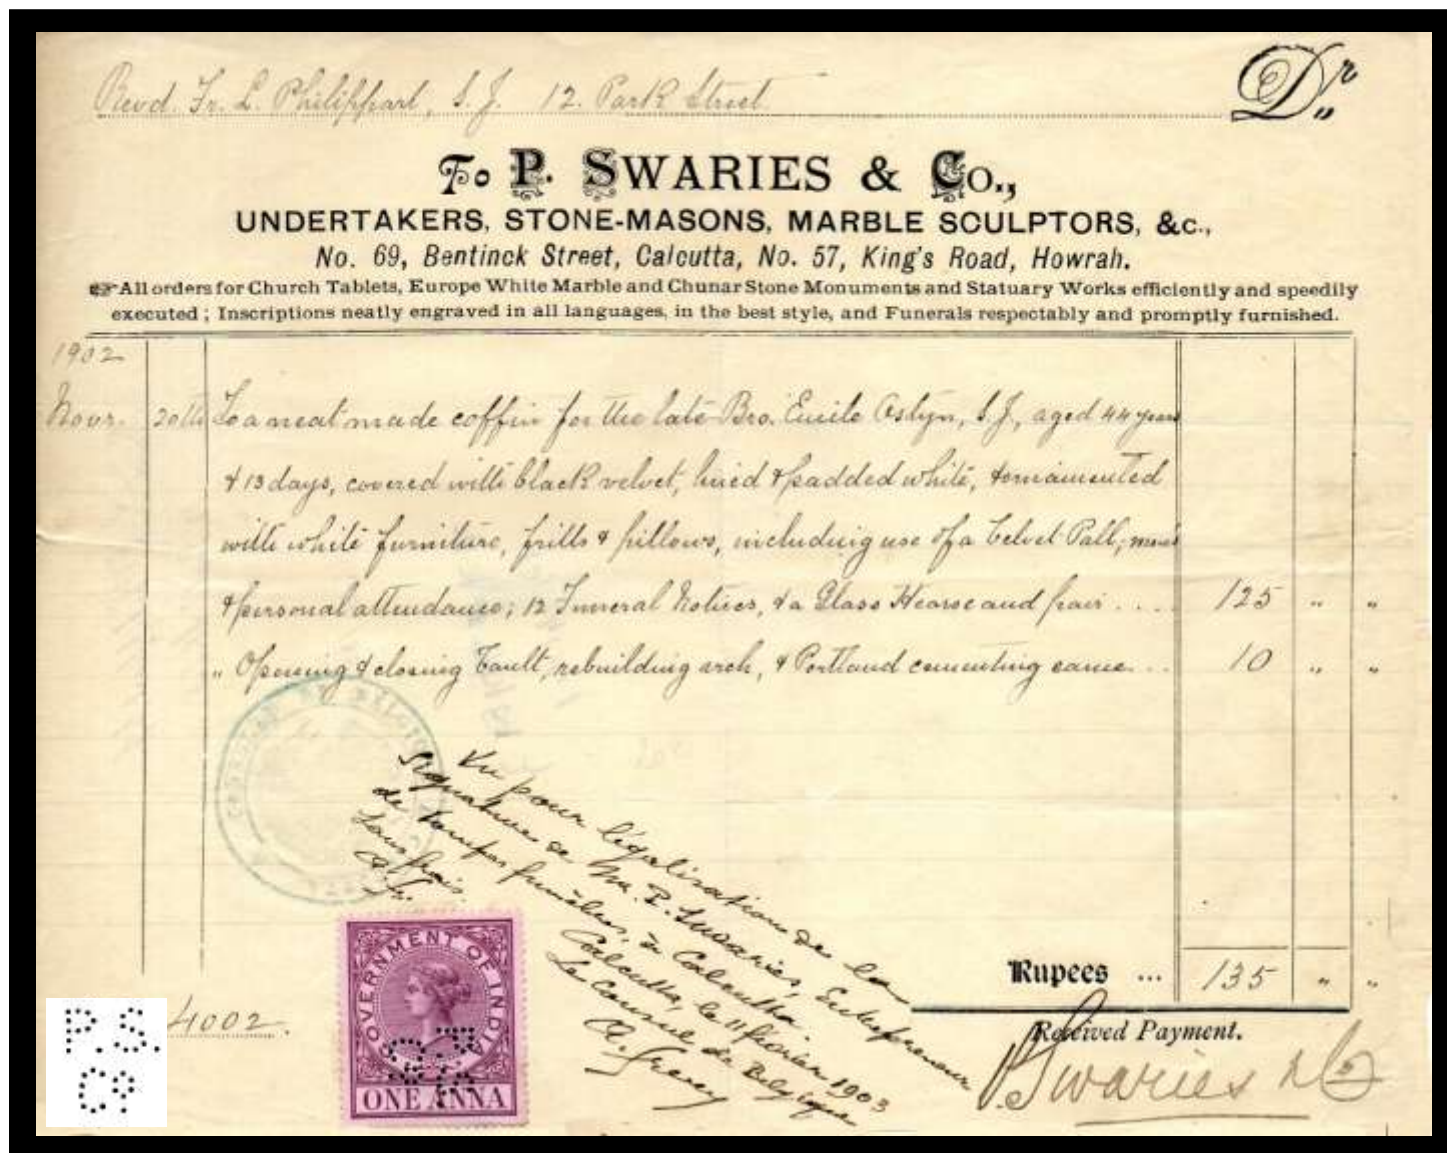 Revd. Fr. L. Philippart, S.J. 12. Park Street
Dr.,,
To P. SWARIES & CO.,
UNDERTAKERS, STONE-MASONS, MARBLE SCULPTORS, &c.,
No. 69, Bentinck Street, Calcutta, No. 57, King's Road, Howrah.
☞All orders for Church Tablets, Europe White Marble and Chunar Stone Monuments and Statuary Works efficiently and speedily
executed; Inscriptions neatly engraved in all languages, in the best style, and Funerals respectably and promptly furnished.
1902
Novr. 20th To a neat made coffin for the late Bro. Emile Ostyn, S.J., aged 44 years
& 13 days, covered with black velvet, lined & padded white, & ornamented
with white furniture, frills & pillows, including use of a Velvet Pall, men's
& personal attendance; 12 Funeral Notices, & a Glass Hearse and pair .... 125 " "
" Opening & closing Vault, rebuilding arch, & Portland cementing same ... 10 " "
Vu pour légalisation de la
signature de Mr. P. Swaries, Entrepreneur
de pompes funèbres, à Calcutta.
Sans frais.
Calcutta, le 11 février 1903
Le Consul de Belgique
Rupees ... 135 " "
Received Payment.
P. Swaries & Co
4002.
GOVERNMENT OF INDIA
ONE ANNA
P.S.
Co